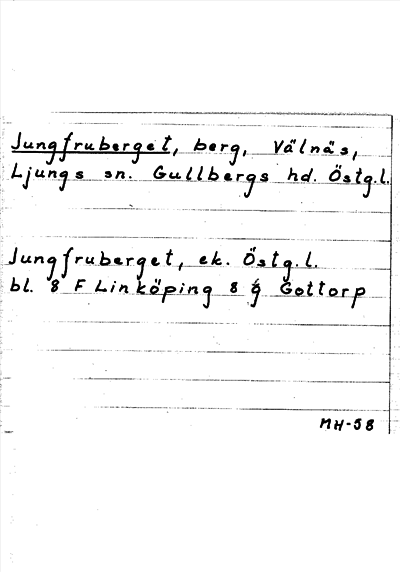 Jungfruberget, berg, Välnäs,
Ljungs sn. Gullbergs hd. Östg.l.
Jungfruberget, ek. Östg.l.
bl. 8 F Linköping 8 g Gottorp
MH-58